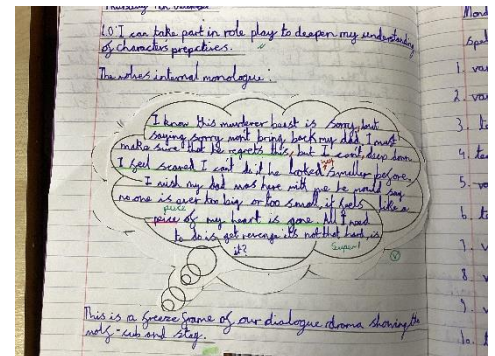 Thursday
L.O: I can take part in role play to deepen my understanding
of characters prepctives.
The wolves internal monologue:
I know this murderer beast is sorry, but
saying sorry wont bring back my dad. I must
make sure that he regrets this, but I can't, deep down
I feel scared I cant do it he looked smaller before,
I wish my dad was here with me he would say
no one is ever too big or too small, it feels like a
piece
peice of my heart is gone. All I need
to do is get revenge it's not that hard, is
it?
Super!
This is a freeze frame of our dialogue drama showing the
wolf-cub and stag.
Mond
Spel
1. var
2. var
3. te
4. te
5. vo
6. t
7. v
8. v
9. v
10. t